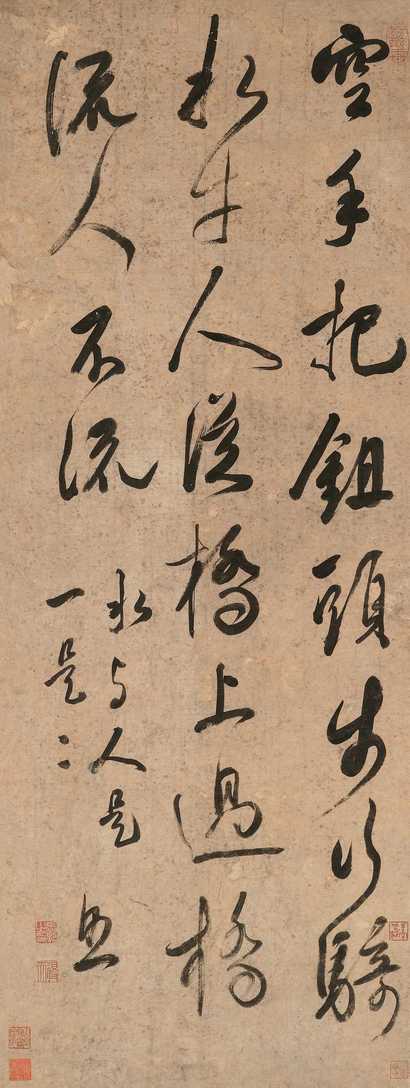 空手把鉏頭步行騎
水牛人從橋上過橋
流人不流
水与人是
一是二